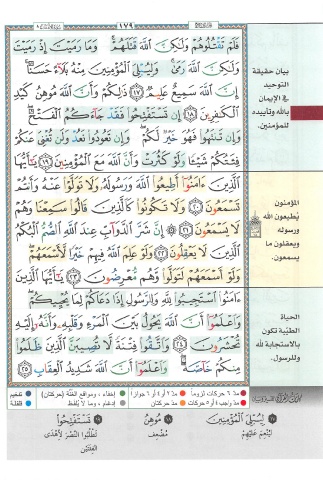 ١٧٩
فَلَمْ تَقْتُلُوهُمْ وَلَٰكِنَّ اللَّهَ قَتَلَهُمْ ۚ وَمَا رَمَيْتَ إِذْ رَمَيْتَ
وَلَٰكِنَّ اللَّهَ رَمَىٰ ۚ وَلِيُبْلِيَ الْمُؤْمِنِينَ مِنْهُ بَلَاءً حَسَنًا ۚ
إِنَّ اللَّهَ سَمِيعٌ عَلِيمٌ ﴿١٧﴾ ذَٰلِكُمْ وَأَنَّ اللَّهَ مُوهِنُ كَيْدِ
الْكَافِرِينَ ﴿١٨﴾ إِن تَسْتَفْتِحُوا فَقَدْ جَاءَكُمُ الْفَتْحُ ۖ
وَإِن تَنتَهُوا فَهُوَ خَيْرٌ لَّكُمْ ۖ وَإِن تَعُودُوا نَعُدْ وَلَن تُغْنِيَ عَنكُمْ
فِئَتُكُمْ شَيْئًا وَلَوْ كَثُرَتْ وَأَنَّ اللَّهَ مَعَ الْمُؤْمِنِينَ ﴿١٩﴾ يَا أَيُّهَا
الَّذِينَ آمَنُوا أَطِيعُوا اللَّهَ وَرَسُولَهُ وَلَا تَوَلَّوْا عَنْهُ وَأَنتُمْ
تَسْمَعُونَ ﴿٢٠﴾ وَلَا تَكُونُوا كَالَّذِينَ قَالُوا سَمِعْنَا وَهُمْ
لَا يَسْمَعُونَ ﴿٢١﴾ إِنَّ شَرَّ الدَّوَابِّ عِندَ اللَّهِ الصُّمُّ الْبُكْمُ
الَّذِينَ لَا يَعْقِلُونَ ﴿٢٢﴾ وَلَوْ عَلِمَ اللَّهُ فِيهِمْ خَيْرًا لَّأَسْمَعَهُمْ ۖ
وَلَوْ أَسْمَعَهُمْ لَتَوَلَّوا وَّهُم مُّعْرِضُونَ ﴿٢٣﴾ يَا أَيُّهَا الَّذِينَ
آمَنُوا اسْتَجِيبُوا لِلَّهِ وَلِلرَّسُولِ إِذَا دَعَاكُمْ لِمَا يُحْيِيكُمْ ۖ
وَاعْلَمُوا أَنَّ اللَّهَ يَحُولُ بَيْنَ الْمَرْءِ وَقَلْبِهِ وَأَنَّهُ إِلَيْهِ
تُحْشَرُونَ ﴿٢٤﴾ وَاتَّقُوا فِتْنَةً لَّا تُصِيبَنَّ الَّذِينَ ظَلَمُوا
مِنكُمْ خَاصَّةً ۖ وَاعْلَمُوا أَنَّ اللَّهَ شَدِيدُ الْعِقَابِ ﴿٢٥﴾
بيان حقيقة
التوحيد
في الإيمان
بالله وتأييده
للمؤمنين.
المؤمنون
يُطيعون الله
ورسوله
ويعقلون ما
يسمعون.
الحياة
الطيّبة تكون
بالاستجابة لله
وللرسول.
مدّ ٦ حركات لزوماً
مدّ ٢ أو ٤ أو ٦ جوازاً
إخفاء، ومواقع الغُنَّة (حركتان)
تفخيم
مدّ واجب ٤ أو ٥ حركات
مدّ حركتان
إدغام، وما لا يُلفَظ
قلقلة
١٧ لِيُبْلِيَ الْمُؤْمِنِينَ
لِيُنْعِمَ عَلَيْهِمْ
١٨ مُوهِنُ
مُضْعِفُ
١٩ تَسْتَفْتِحُوا
تَطْلُبُوا النَّصْرَ لِأَهْدَى
الْفِئَتَيْنِ